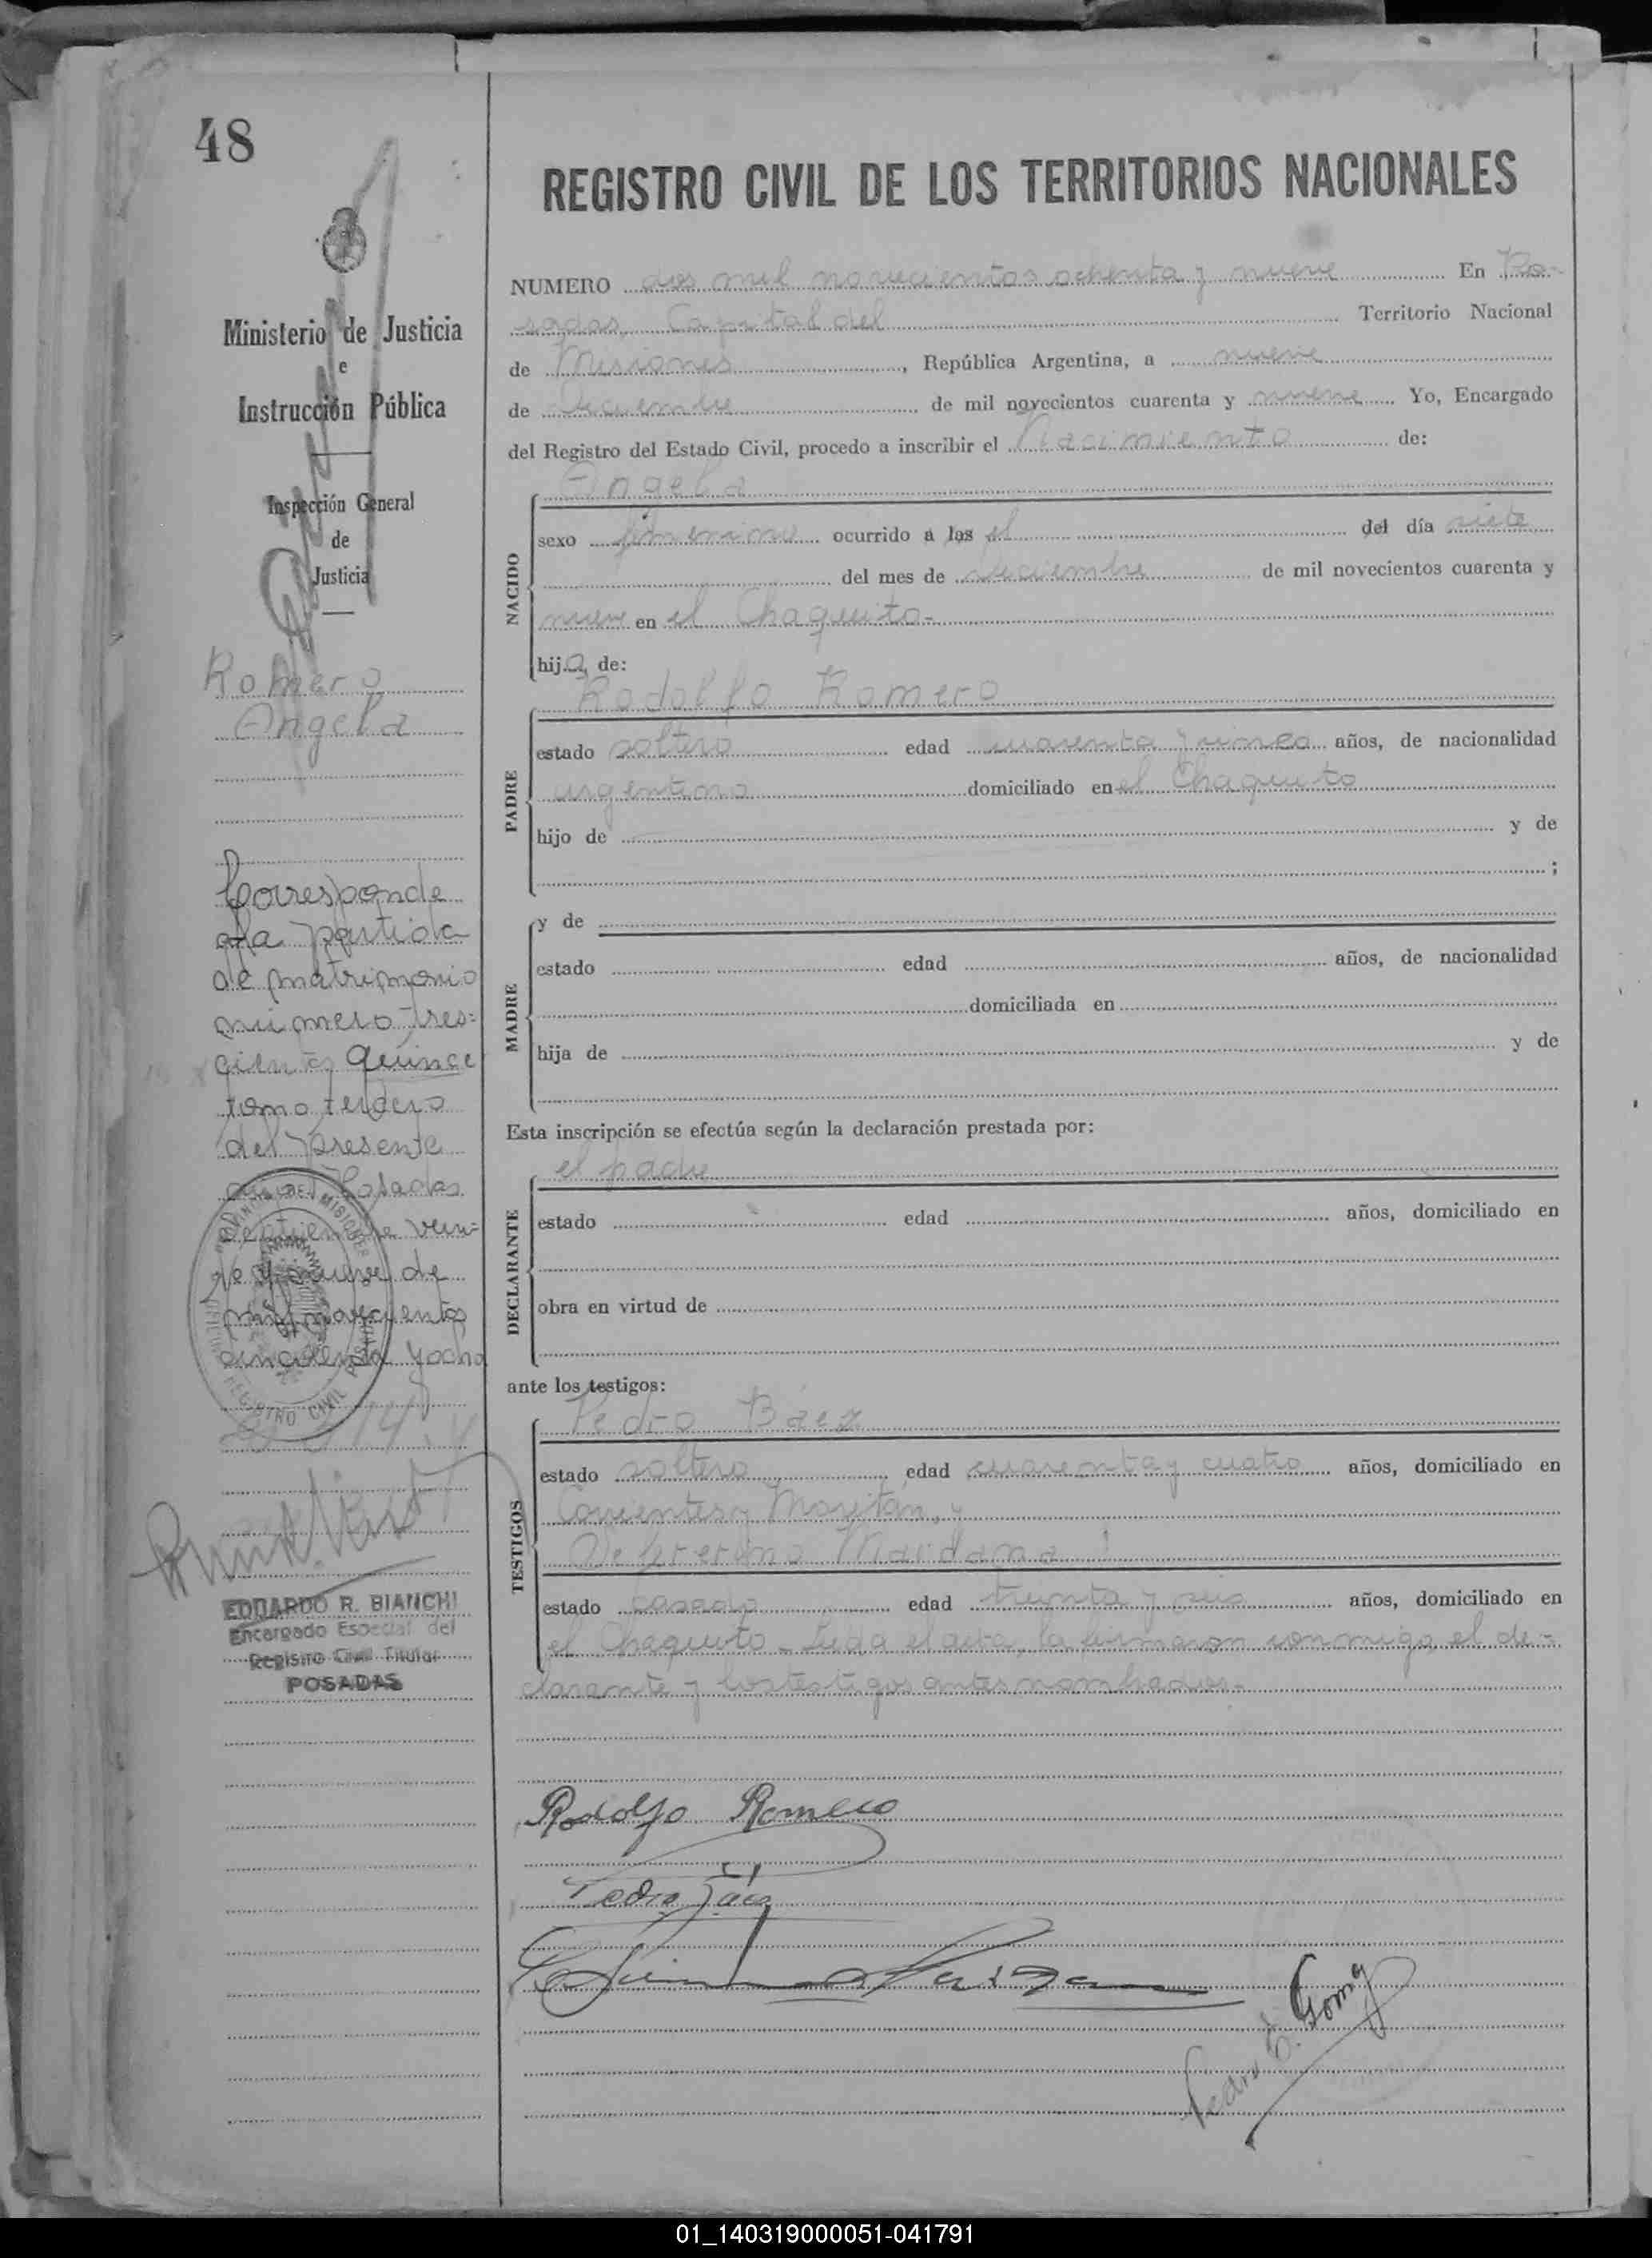 48
REGISTRO CIVIL DE LOS TERRITORIOS NACIONALES
Ministerio de Justicia
e
Instrucción Pública
Inspección General
de
Justicia
Romero
Angela
Corresponde
a la partida
de matrimonio
numero tres=
cientos quince
tomo tercero
del presente
año. Posadas
vein=
te y nueve de
mil novecientos
cincuenta y ocho
EDUARDO R. BIANCHI
Encargado Especial del
Registro Civil Titular
POSADAS
NUMERO dos mil novecientos ochenta y nueve En Po-
sadas, Capital del Territorio Nacional
de Misiones, República Argentina, a nueve
de Diciembre de mil novecientos cuarenta y nueve Yo, Encargado
del Registro del Estado Civil, procedo a inscribir el Nacimiento de:
NACIDO
Angela
sexo femenino ocurrido a las el del día siete
del mes de diciembre de mil novecientos cuarenta y
nueve en el Chaquito-
hija de:
PADRE
Rodolfo Romero
estado soltero edad cuarenta y cinco años, de nacionalidad
argentina domiciliado en el Chaquito
hijo de y de
;
MADRE
y de
estado edad años, de nacionalidad
domiciliada en
hija de y de
Esta inscripción se efectúa según la declaración prestada por:
DECLARANTE
el padre
estado edad años, domiciliado en
obra en virtud de
ante los testigos:
TESTIGOS
Pedro Báez
estado soltero edad cuarenta y cuatro años, domiciliado en
Corrientes y Moritán, y
Maidana
estado casado edad treinta y seis años, domiciliado en
el Chaquito - Leida el acta, la firmaron conmigo, el de-
clarante y los testigos antes nombrados.-
Rodolfo Romero
Pedro Báez
Pedro Gomez
01_140319000051-041791